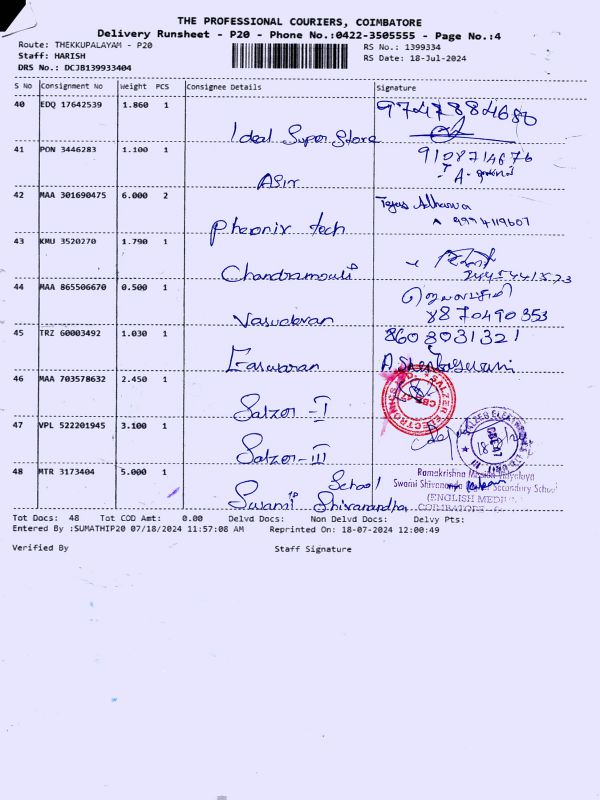 THE PROFESSIONAL COURIERS, COIMBATORE
Delivery Runsheet - P20 - Phone No.:0422-3505555 - Page No.:4
Route: THEKKUPALAYAM - P20
RS No.: 1399334
Staff: HARISH
RS Date: 18-Jul-2024
DRS No.: DCJB139933404
S No Consignment No Weight PCS Consignee Details Signature
40 EDQ 17642539 1.860 1
Ideal Super Store
41 PON 3446283 1.100 1
9108714676
Asir
42 MAA 301690475 6.000 2
Pheonix tech
9994119607
43 KMU 3520270 1.790 1
Chandramouli
44 MAA 865506670 0.500 1
Vasudevan
8870490353
45 TRZ 60003492 1.030 1
8608031321
Easwaran
46 MAA 703578632 2.450 1
SALZER ELECTRONICS
Salzer - I
47 VPL 522201945 3.100 1
Salzer - III
48 MTR 3173404 5.000 1
School
Swami Shivanandha
Ramakrishna Mission Vidyalaya
Swami Shivananda Secondary School
(ENGLISH MEDIUM
Tot Docs: 48 Tot COD Amt: 0.00 Delvd Docs: Non Delvd Docs: Delvy Pts:
Entered By :SUMATHIP20 07/18/2024 11:57:08 AM Reprinted On: 18-07-2024 12:00:49
Verified By Staff Signature